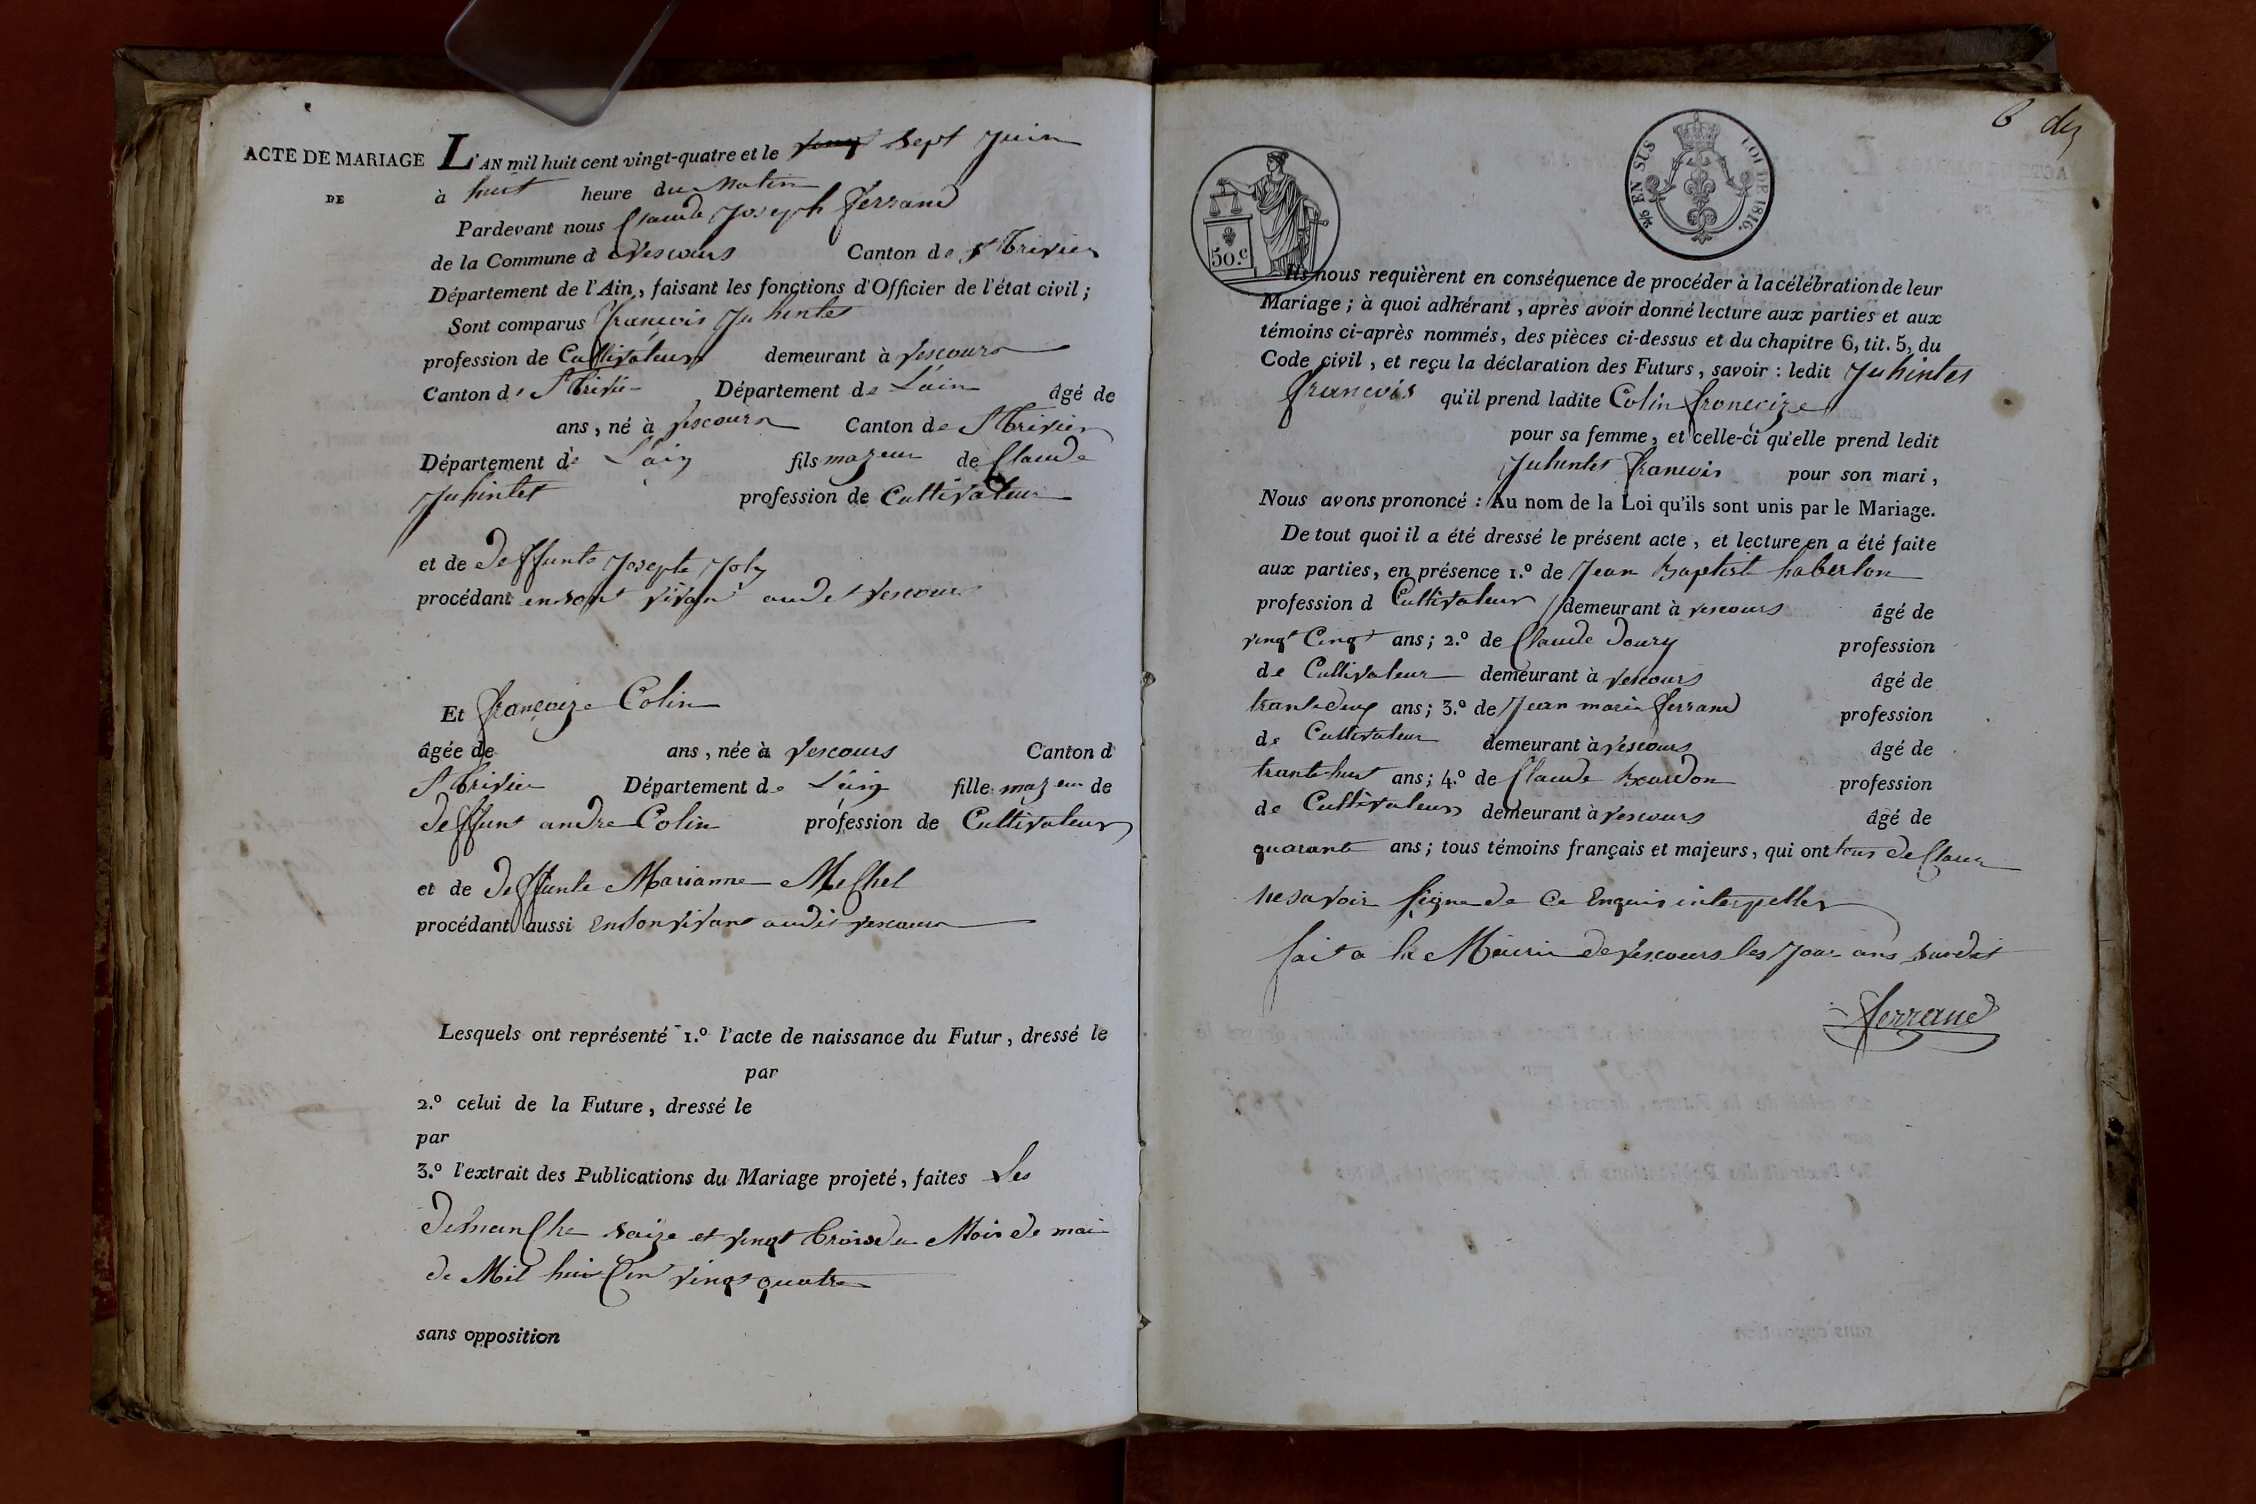 ACTE DE MARIAGE
DE
L'AN mil huit cent vingt-quatre et le sept juin
à huit heure du Matin
Pardevant nous Claude Joseph ferrand
de la Commune d vescours Canton de St trivier
Département de l'Ain, faisant les fonctions d'Officier de l'état civil;
Sont comparus françois Juhintet
profession de Cultivateur demeurant à vescours
Canton de St trivier Département de L'ain âgé de
ans, né à vescours Canton de St trivier
Département de L'ain fils mazeur de Claude
Juhintet profession de Cultivateur
et de deffunte Josepte Joly
procédant en son vivan audet vescours
Et françoize Colin
âgée de ans, née à vescours Canton d
St trivier Département de L'ain fille mazeur de
deffunt andre Colin profession de Cultivateur
et de deffunte Marianne Mechel
procédant aussi en son vivant audit vescours
Lesquels ont représenté 1.º l'acte de naissance du Futur, dressé le
par
2.º celui de la Future, dressé le
par
3.º l'extrait des Publications du Mariage projeté, faites Les
demanche saize et vingt troisdu Mois de mai
de Mil hui Cen vingt quatre
sans opposition
6 dez
4/10 EN SUS
LOI DE 1816.
50.c
Ils nous requièrent en conséquence de procéder à la célébration de leur
Mariage; à quoi adhérant, après avoir donné lecture aux parties et aux
témoins ci-après nommés, des pièces ci-dessus et du chapitre 6, tit. 5, du
Code civil, et reçu la déclaration des Futurs, savoir: ledit Juhintet
francois qu'il prend ladite Colin franecize
pour sa femme, et celle-ci qu'elle prend ledit
Juhintet francois pour son mari,
Nous avons prononcé: Au nom de la Loi qu'ils sont unis par le Mariage.
De tout quoi il a été dressé le présent acte, et lecture en a été faite
aux parties, en présence 1.º de Jean Baptiste haberlon
profession d Cultivateur demeurant à vescours âgé de
vingt Cinq ans; 2.º de Claude doury profession
de Cultivateur demeurant à vescours âgé de
trantedeux ans; 3.º de Jean marie ferrand profession
de Cultivateur demeurant à vescours âgé de
trante huit ans; 4.º de Claude Bourdon profession
de Cultivateur demeurant à vescours âgé de
quarante ans; tous témoins français et majeurs, qui ont tous de Claire
ne savoir signe de Ce Enquis interpeller
fait a la Mairie de vescours les Jour ans susdit
ferrand